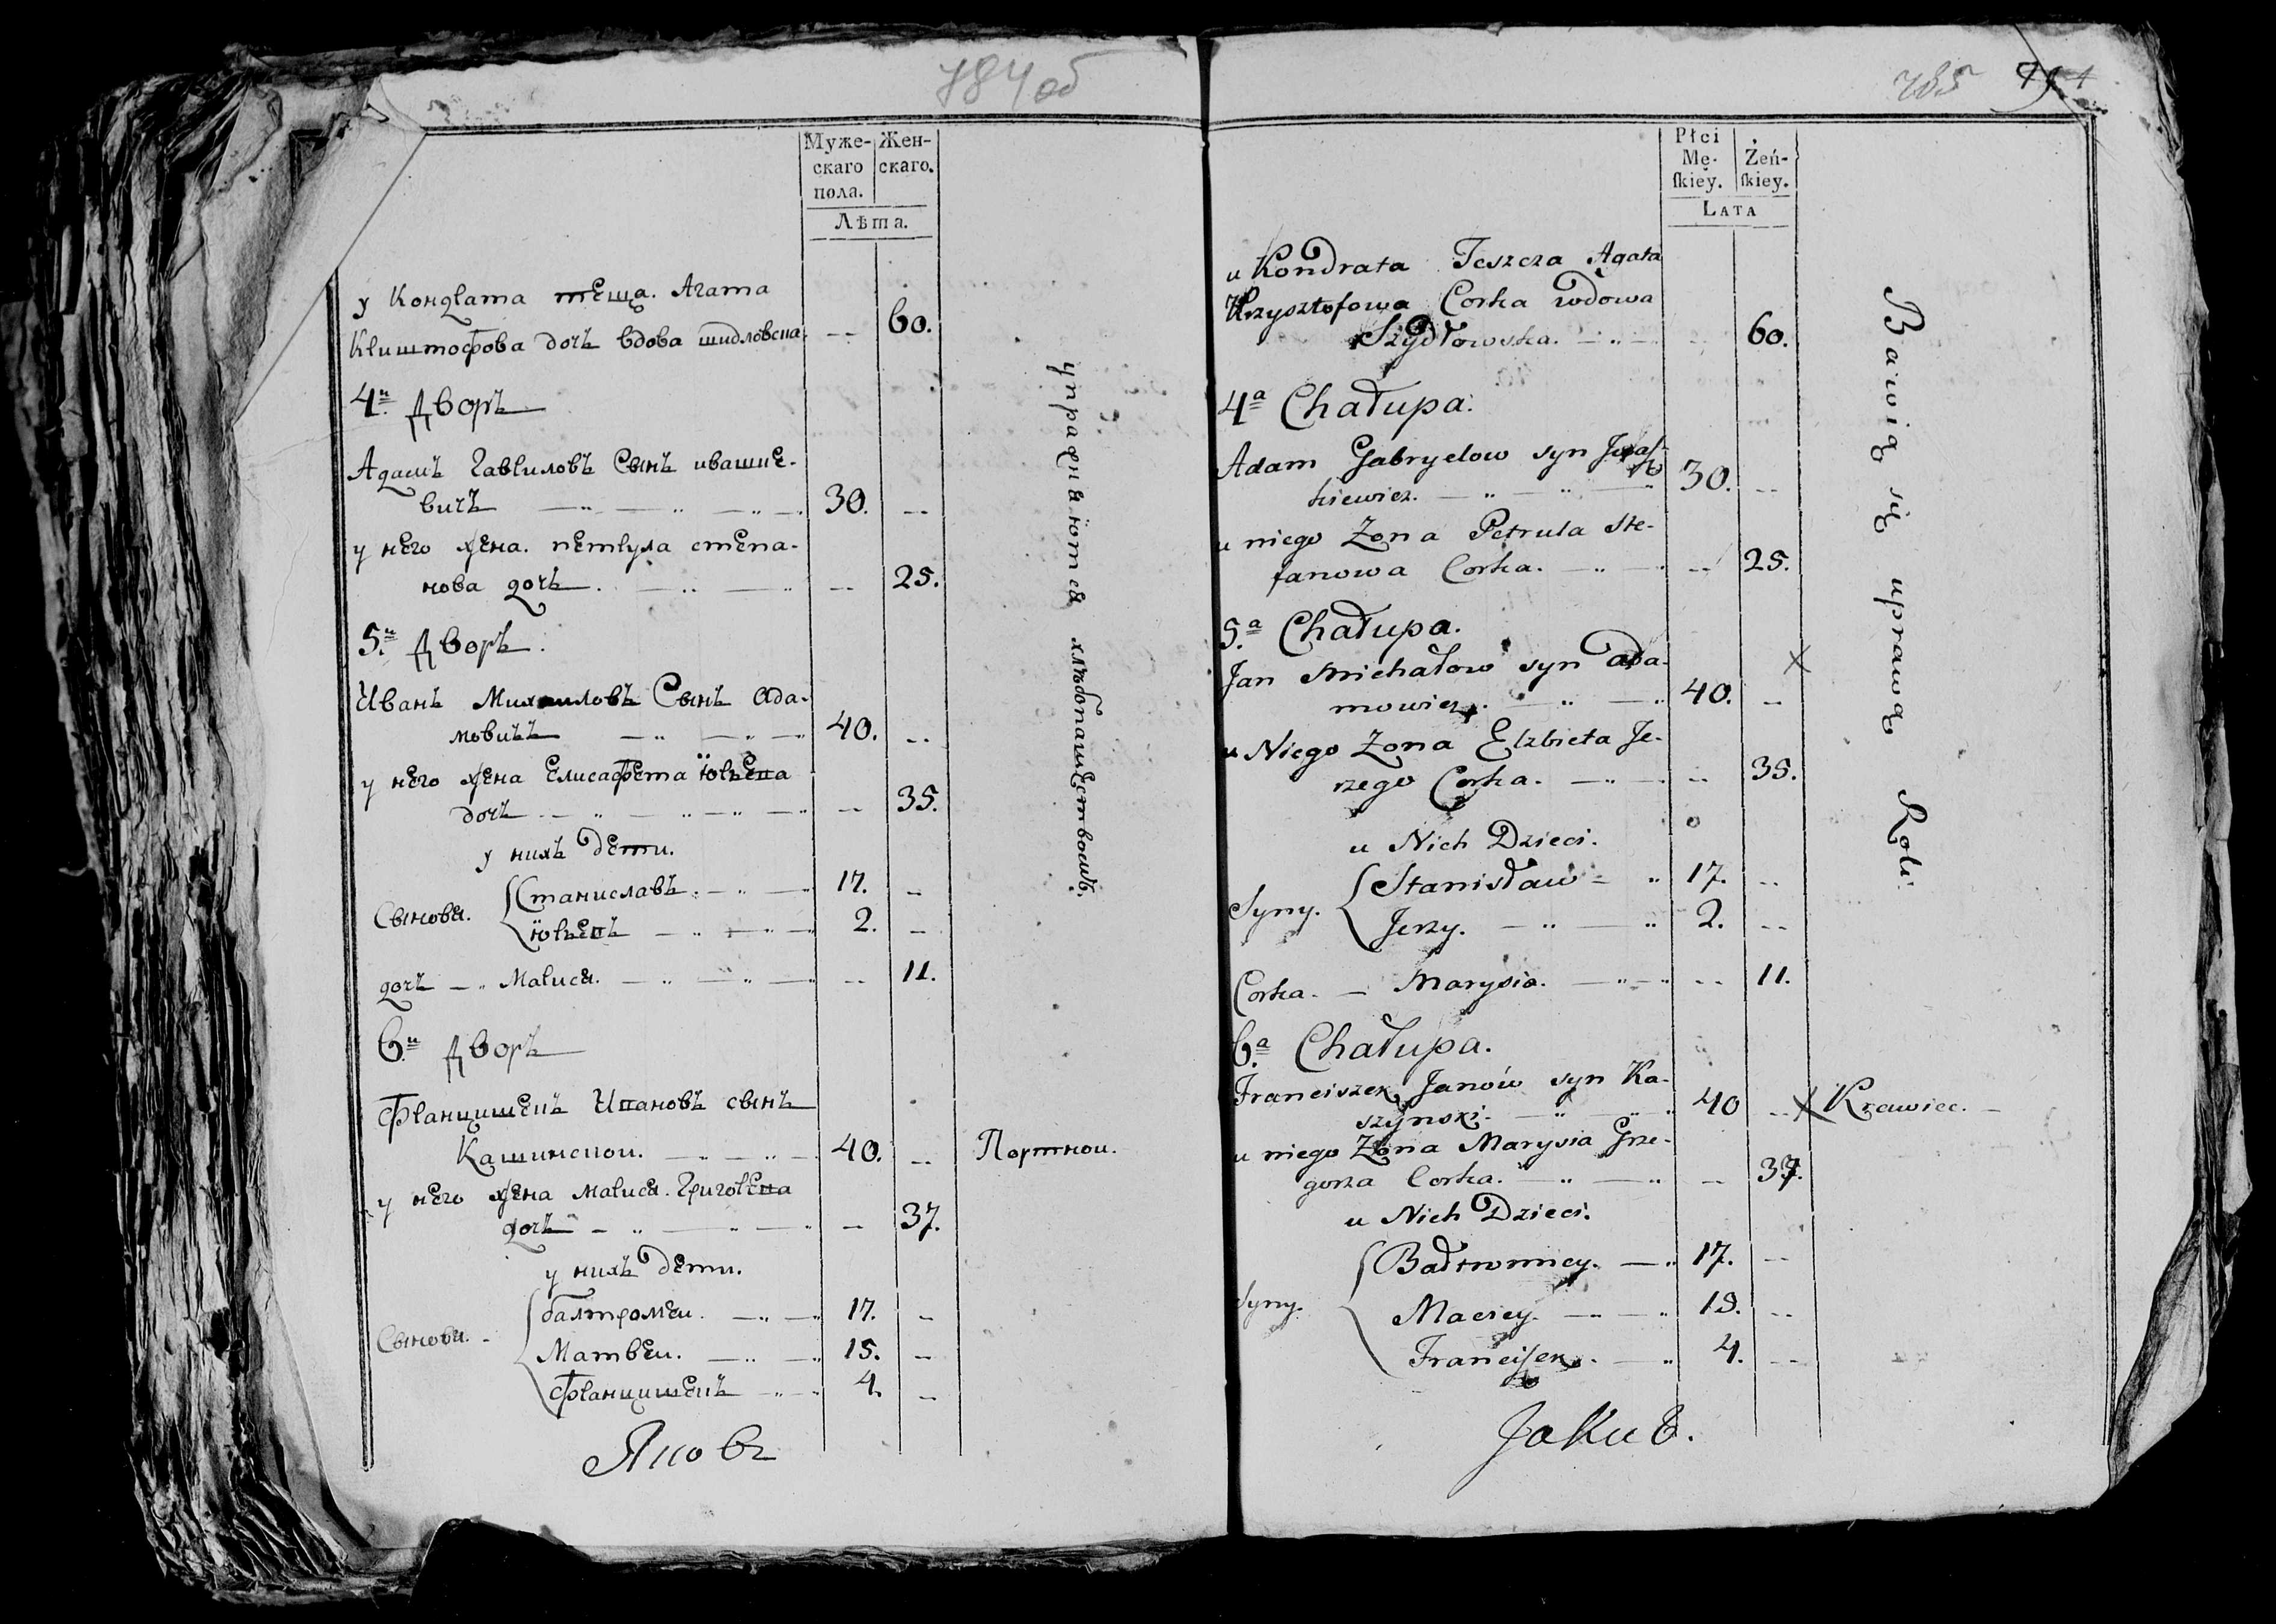 784 об
Муже-
скаго
пола.
Жен-
скаго.
Лѣта.
у Кондрата тещa. Агата
Криштофова дочь вдова шидловска. -- 60.
4й. Дворъ
Адамъ Гавриловъ Сынъ ивашке-
вичъ 30. --
у него жена. петрула степа-
нова дочь. -- 25.
5й. Дворъ.
Иванъ Михаиловъ Сынъ ада-
мовичъ 40. --
у него жена Елисафета юрьева
дочь -- 35.
у нихъ дети.
Сыновя. Станиславъ. 17. --
юрьеи 2. --
дочь Марися. -- 11.
6й Дворъ
Францишекъ Ивановъ сынъ
Кашинскои. 40. -- Портнои.
у него жена марися. Григорева
дочь -- 37.
у нихъ дети.
Сынови. балтромеи. 17. --
Матвеи. 15. --
Францишекъ 4. --
Яковъ
упражняются хлѣбопашествомъ.
785
Płci
Mę-
ſkiey.
Żeń-
ſkiey.
LATA
u Kondrata Teszcza Agata
Krzysztofowa Corka wdowa
Szydłowska. -- 60.
4a Chałupa.
Adam Gabryelow syn Jwaſ-
kiewicz. 30. --
u niego Zona Petrula Ste-
fanowa Corka. -- 25.
5a Chałupa.
Jan Michałow syn Ada-
mowicz. 40. --
u Niego Zona Elzbieta Je-
rzego Corka. -- 35.
u Nich Dzieci.
Syny. Stanisław 17. --
Jerzy. 2. --
Corka. Marysia. -- 11.
6a Chałupa.
Franciszek Janów syn Ka-
szynski. 40 -- X Krawiec.
u niego Zona Marysia Grze-
gorza Corka. -- 37.
u Nich Dzieci.
Syny. Bałtromiey. 17. --
Maciey. 15. --
Franciſzek. 4. --
Jakub.
Bawią się uprawą Roli.